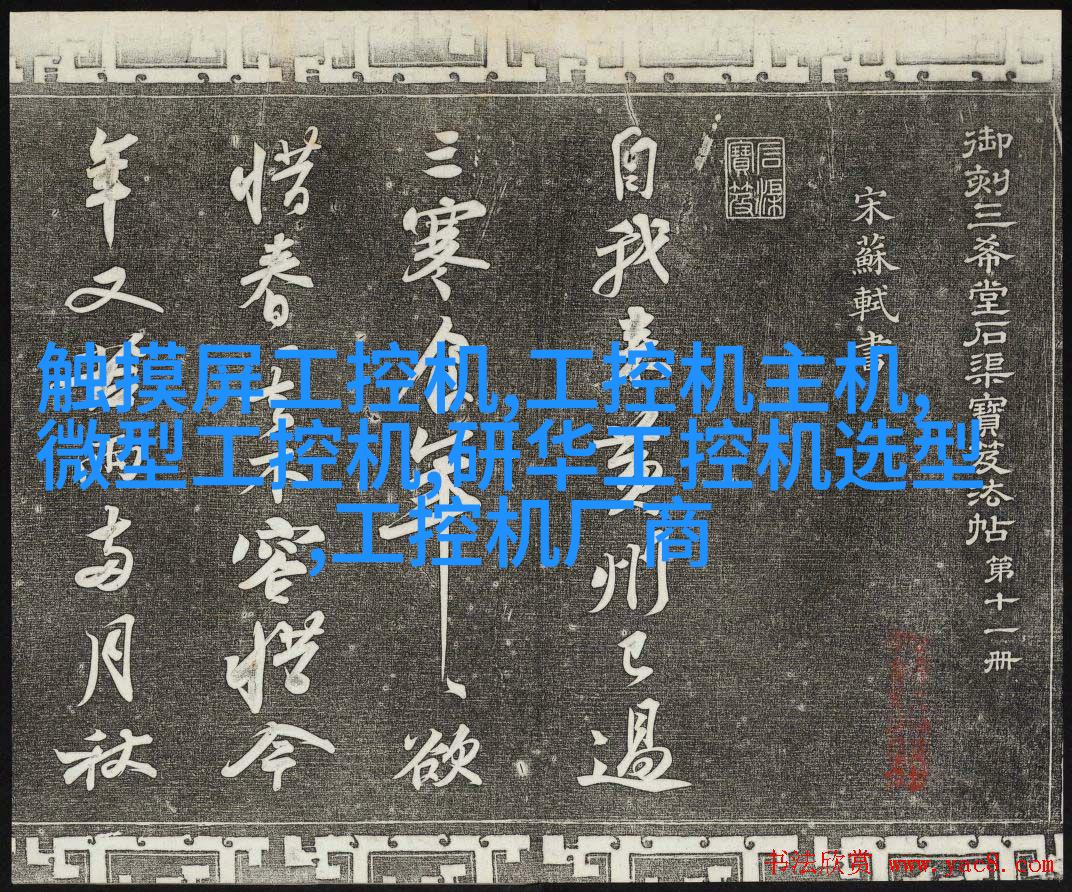 御刻三希堂石渠寶笈法帖 第十一冊
宋蘇軾書
石渠寶笈
自我來黃州已過
三寒食年、欲
惜春、去不容惜今
年又苦雨兩月秋
触摸屏工控机,工控机主机,
微型工控机,研华工控机选型
,工控机厂商
书法欣赏 www.yac8.com